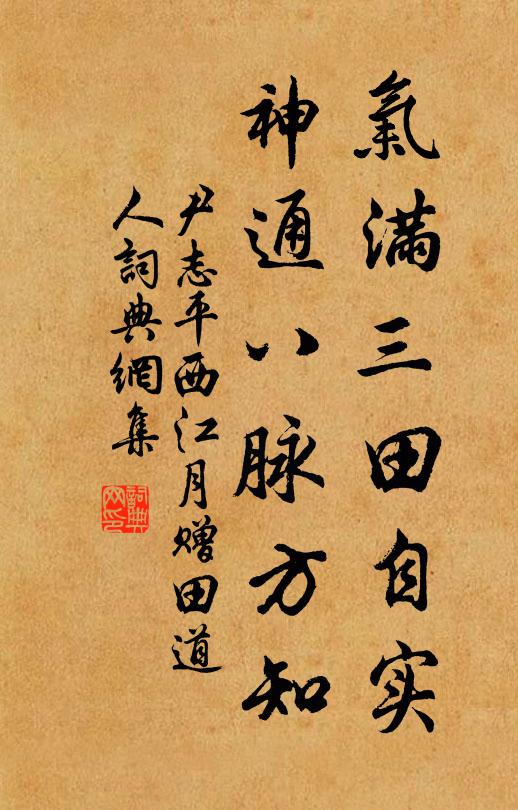 氣滿三田自实
神通八脉方知
尹志平西江月赠田道
人詞典網集
詞典
网印